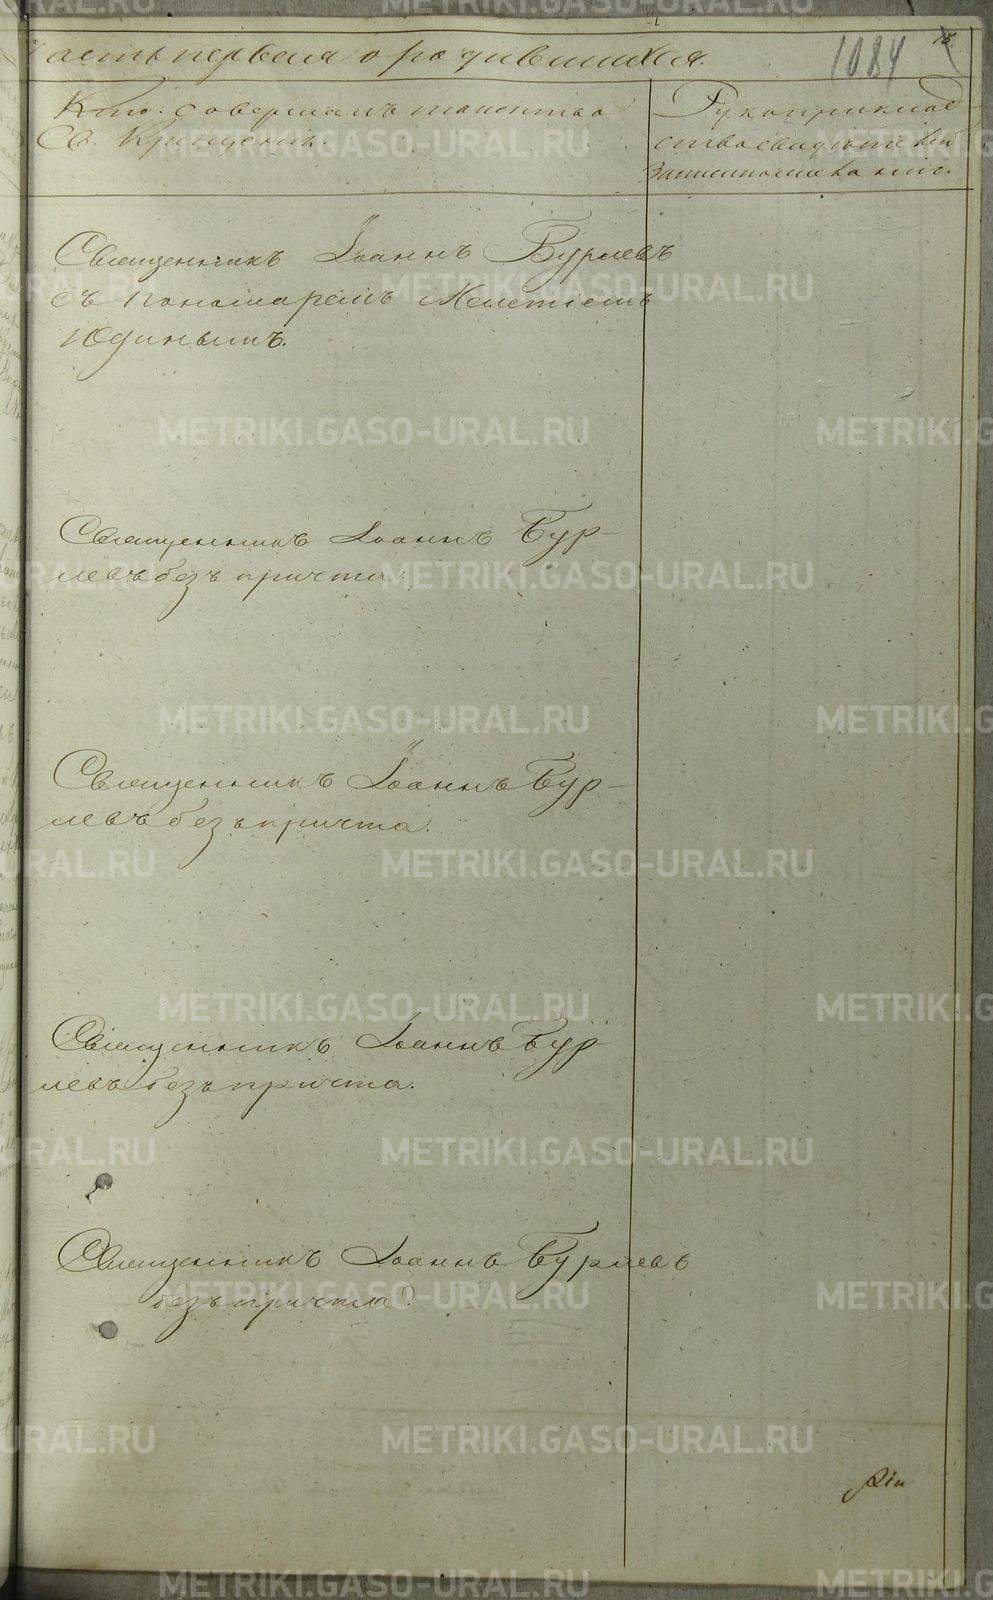 Часть первая о родившихся.
1084
15
Кто совершалъ таинство
Св. Крещенія.
Рукоприклад
ство свидѣтелей
записи по желанію.
Священникъ Іоаннъ Бурлевъ
съ пономаремъ Мелетіемъ
Юдинымъ.
Священникъ Іоаннъ Бур-
левъ безъ причта.
Священникъ Іоаннъ Бур-
левъ безъ причта.
Священникъ Іоаннъ Бур-
левъ безъ причта.
Священникъ Іоаннъ Бурлевъ
безъ причта.
METRIKI.GASO-URAL.RU